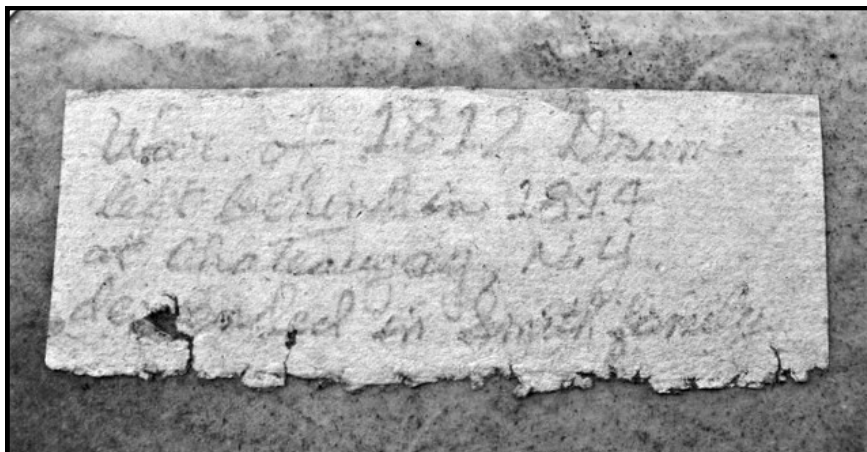 War of 1812 Drum
left behind in 1814
at Chateaugay, N.Y.
descended in Smith family